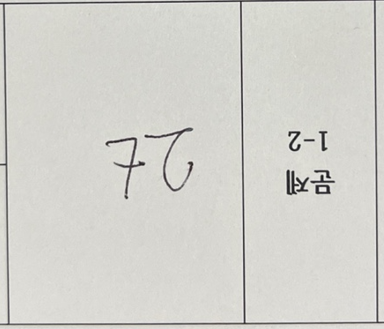 문제
1-2
2t